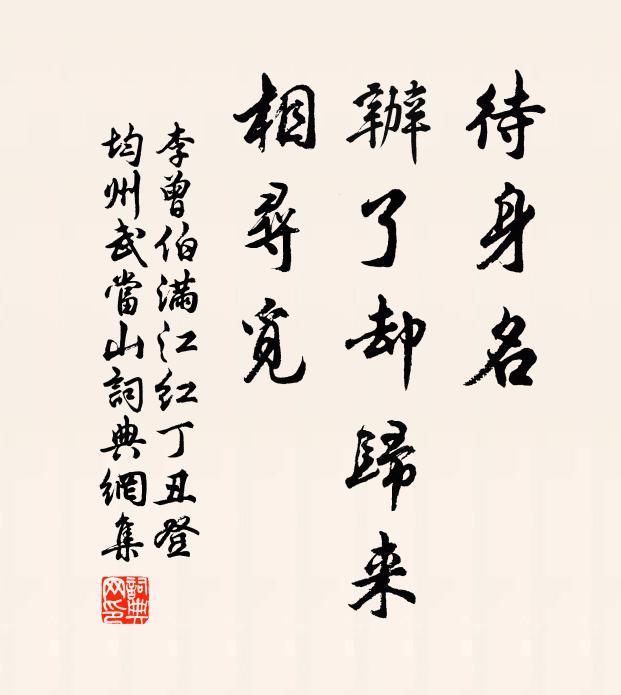 待身名
辦了却歸来
相尋覓
李曾伯满江红丁丑登
均州武當山詞典網集
詞典网印